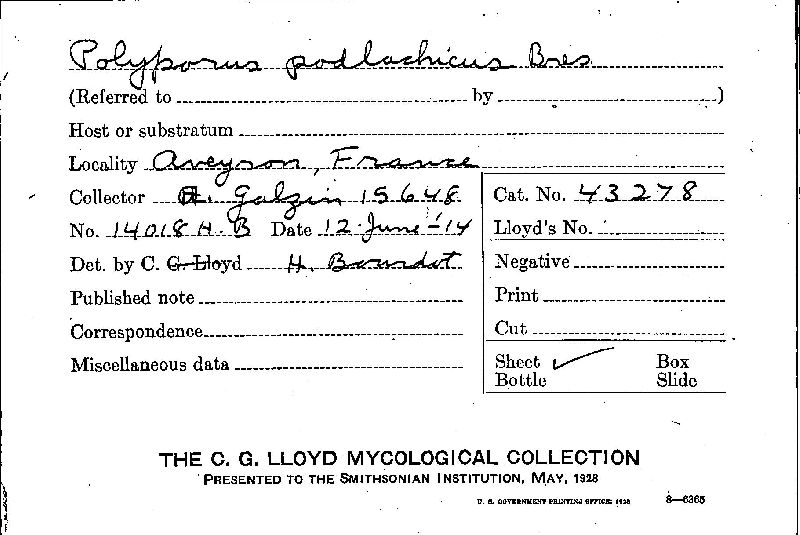 Polyporus podlachicus Bres
(Referred to by )
Host or substratum
Locality Aveyron, France
Collector A. Galzin 15648
Cat. No. 43278
No. 14018 H. B Date 12 June-14
Lloyd's No.
Det. by C. G. Lloyd H. Bourdot
Negative
Published note
Print
Correspondence
Cut
Miscellaneous data
Sheet ✓ Box
Bottle Slide
THE C. G. LLOYD MYCOLOGICAL COLLECTION
PRESENTED TO THE SMITHSONIAN INSTITUTION, MAY, 1928
U. S. GOVERNMENT PRINTING OFFICE: 1928 8—6365